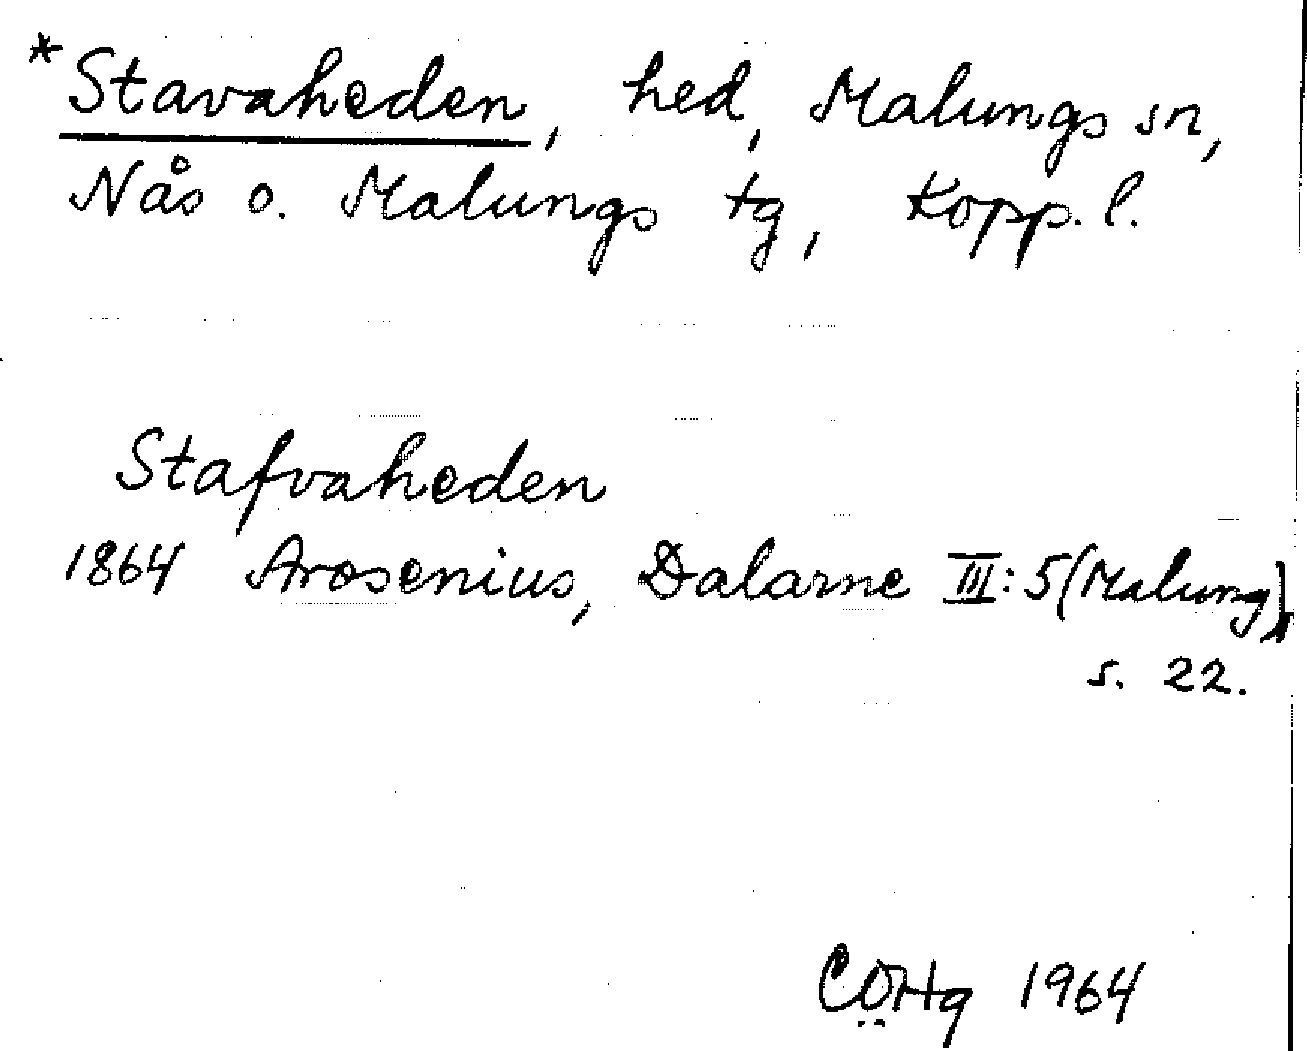 *Stavaheden, hed, Malungs sn,
Nås o. Malungs tg, Kopp. l.
Stafvaheden
1864 Arosenius, Dalarne III:5 (Malung),
s. 22.
CÖHg 1964